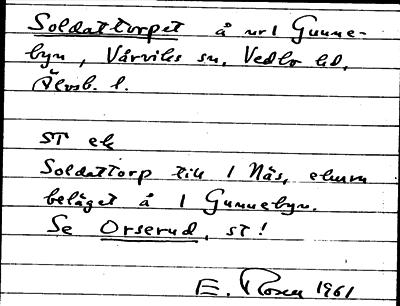 Soldattorpet å nr 1 Gunne-
byn, Vårviks sn, Vedbo hd,
Älvsb. l.
ST ek
Soldattorp till 1 Näs, ehuru
beläget å 1 Gunnebyn.
Se Orserud, st!
E. Rosen 1961